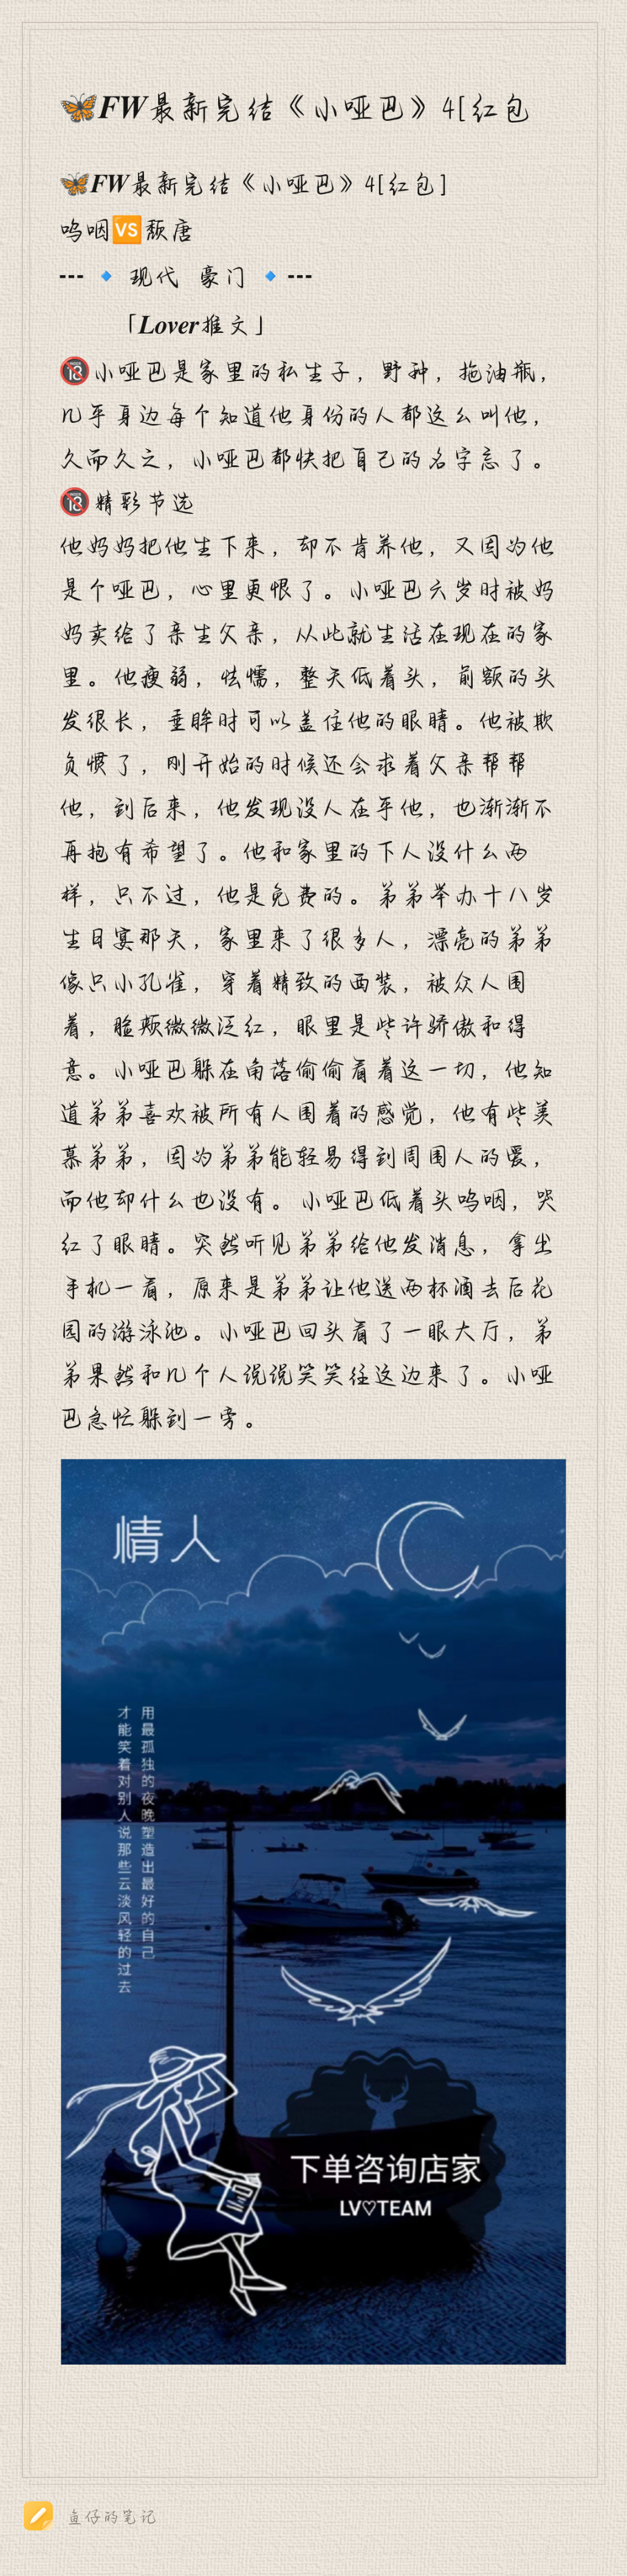 🦋FW最新完结《小哑巴》4[红包
🦋FW最新完结《小哑巴》4[红包]
呜咽🆚颓唐
--- 🔹 现代 豪门 🔹 ---
「Lover推文」
🔞小哑巴是家里的私生子，野种，拖油瓶，
几乎身边每个知道他身份的人都这么叫他，
久而久之，小哑巴都快把自己的名字忘了。
🔞精彩节选
他妈妈把他生下来，却不肯养他，又因为他
是个哑巴，心里更恨了。小哑巴六岁时被妈
妈卖给了亲生父亲，从此就生活在现在的家
里。他瘦弱，怯懦，整天低着头，前额的头
发很长，垂眸时可以盖住他的眼睛。他被欺
负惯了，刚开始的时候还会求着父亲帮帮
他，到后来，他发现没人在乎他，也渐渐不
再抱有希望了。他和家里的下人没什么两
样，只不过，他是免费的。弟弟举办十八岁
生日宴那天，家里来了很多人，漂亮的弟弟
像只小孔雀，穿着精致的西装，被众人围
着，脸颊微微泛红，眼里是些许骄傲和得
意。小哑巴躲在角落偷偷看着这一切，他知
道弟弟喜欢被所有人围着的感觉，他有些羡
慕弟弟，因为弟弟能轻易得到周围人的爱，
而他却什么也没有。 小哑巴低着头呜咽，哭
红了眼睛。突然听见弟弟给他发消息，拿出
手机一看，原来是弟弟让他送两杯酒去后花
园的游泳池。小哑巴回头看了一眼大厅，弟
弟果然和几个人说说笑笑往这边来了。小哑
巴急忙躲到一旁。
情人
用最孤独的夜晚塑造出最好的自己
才能笑着对别人说那些云淡风轻的过去
下单咨询店家
LV♡TEAM
鱼仔的笔记